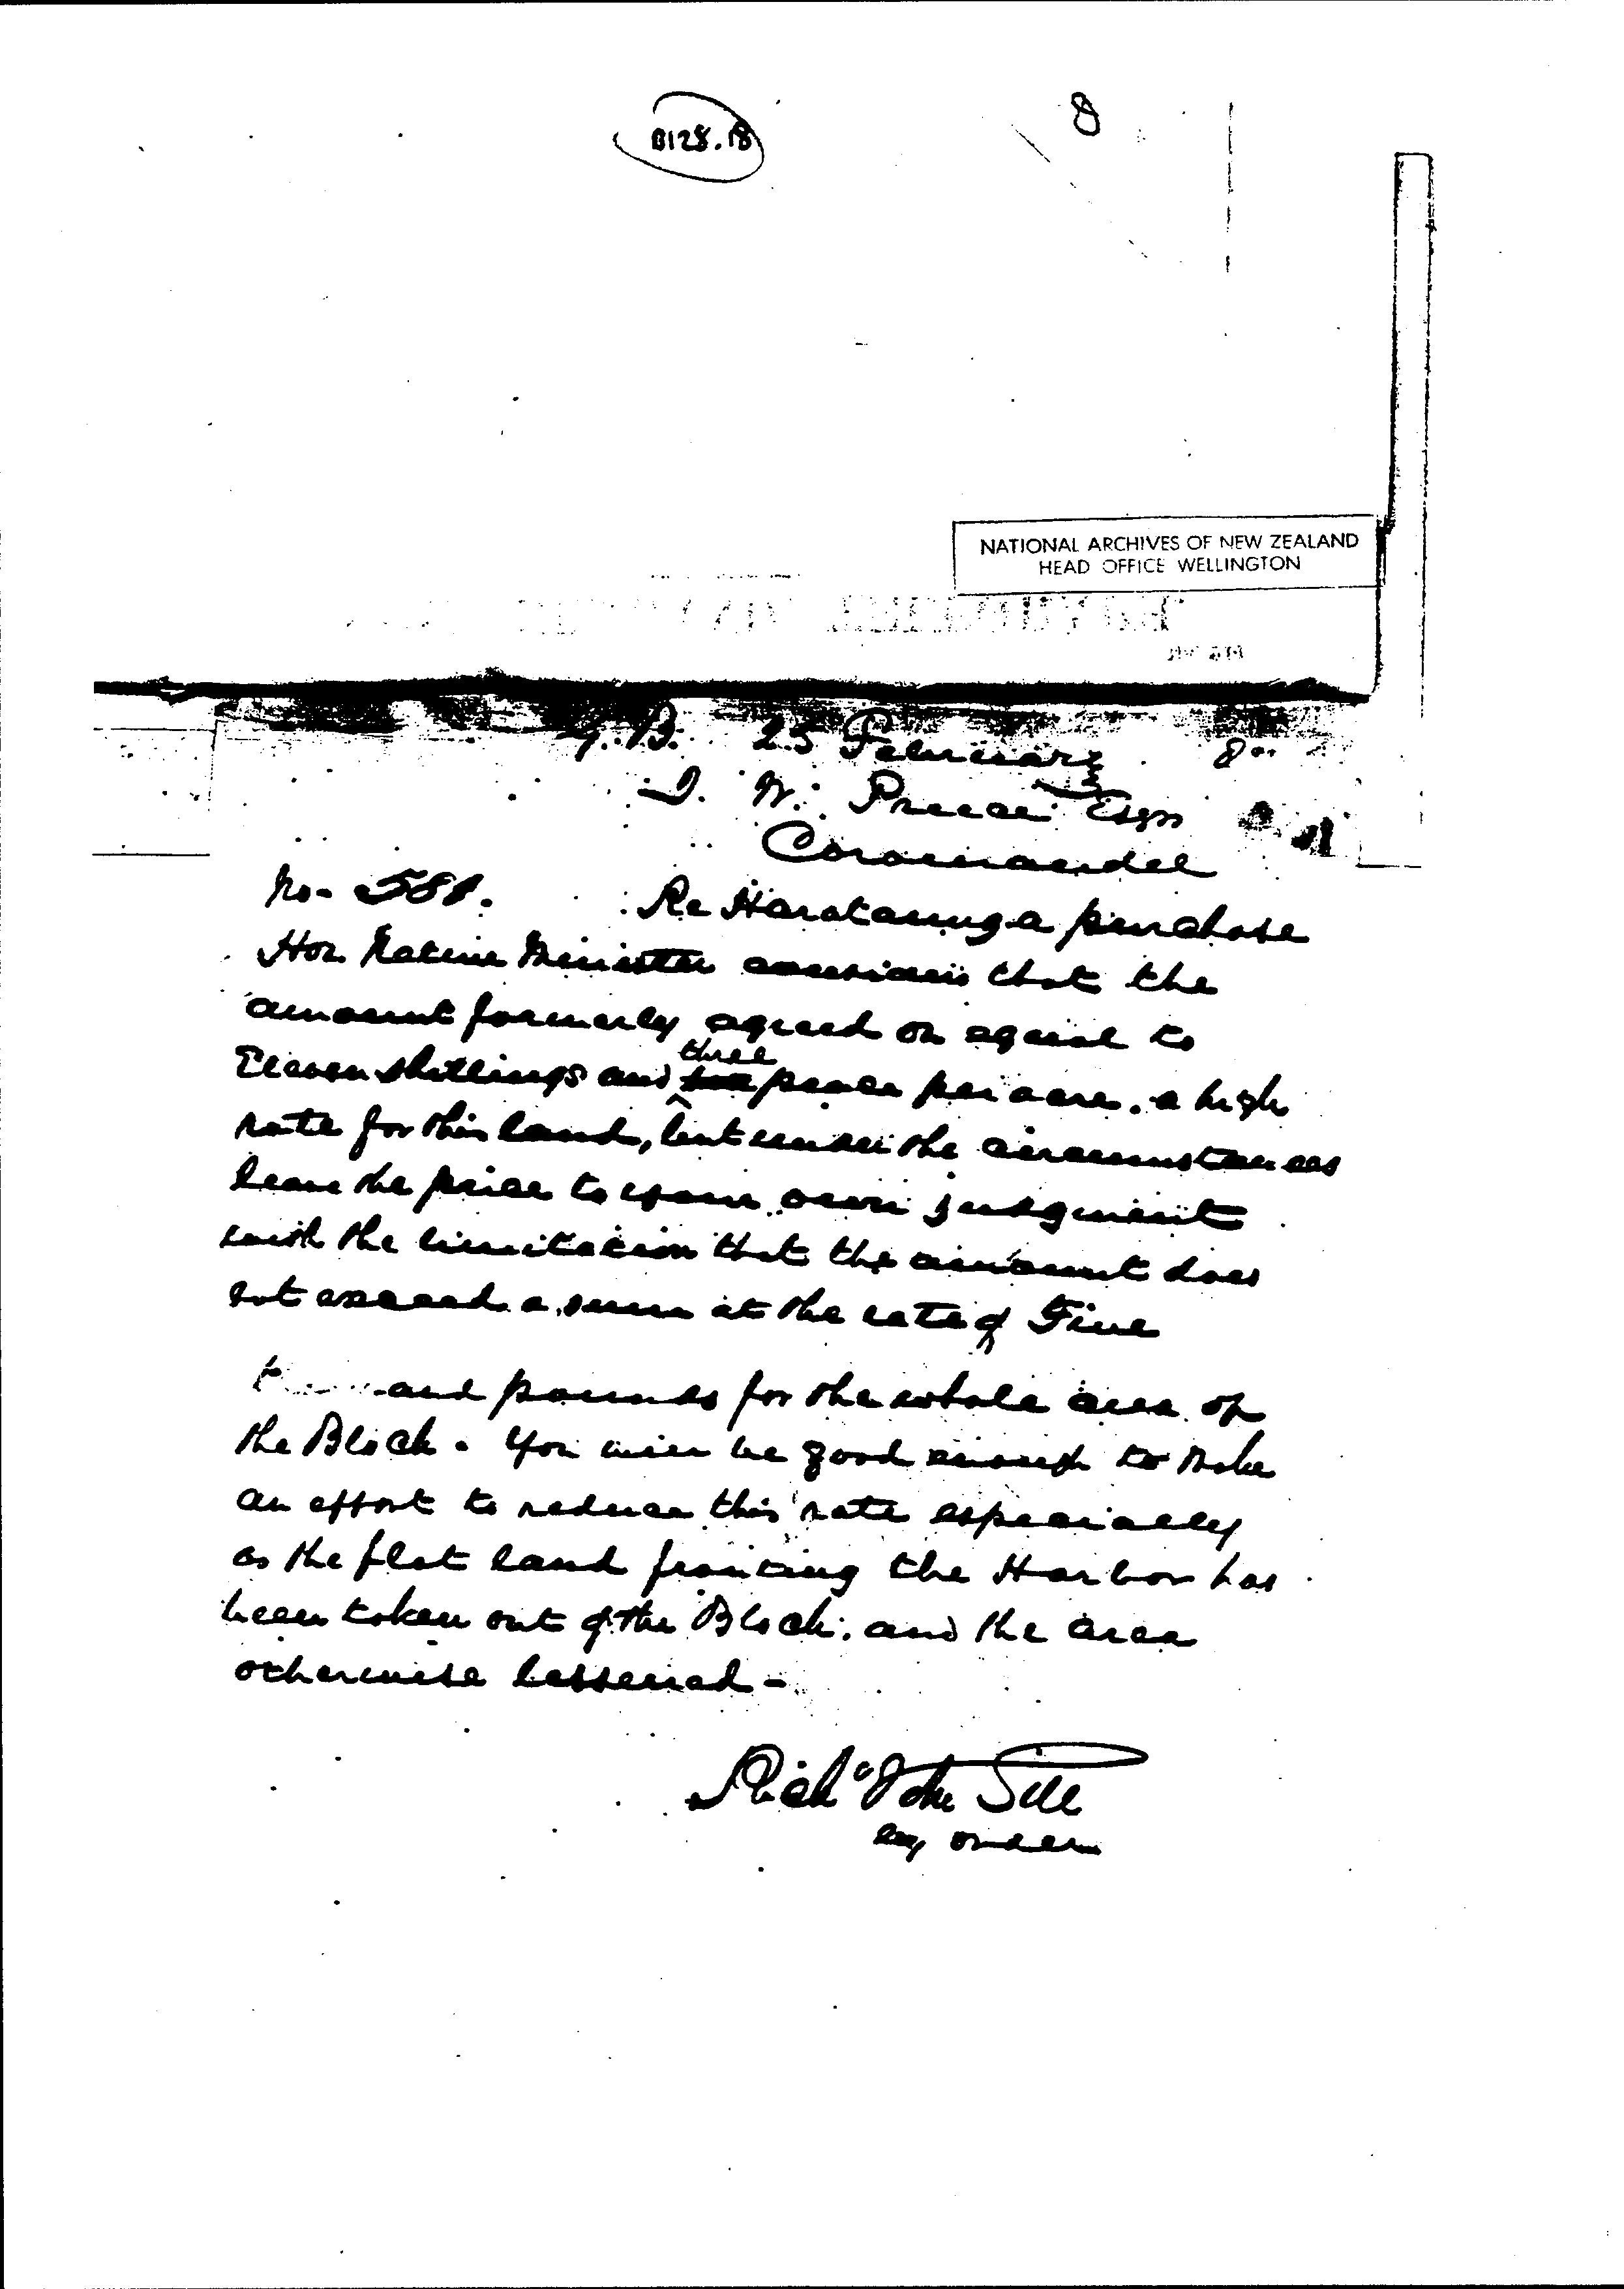 B128.18
8
NATIONAL ARCHIVES OF NEW ZEALAND
HEAD OFFICE WELLINGTON
G.B. 25 February 80
J. W. Preece Esqre
Coromandel
No. 588. Re Harataunga purchase
Hon Native Minister considers that the
amount formerly agreed on equal to
three
Eleven shillings and pence per acre. a high
rate for this land, but under the circumstances
leave the price to your own judgment
with the limitation that the amount does
not exceed a sum at the rate of Five
and pounds for the whole area of
the Block. You will be good enough to make
an effort to reduce this rate especially
as the flat land fronting the Harbor has
been taken out of the Block. and the area
otherwise lessened -
Richd John Gill
by order